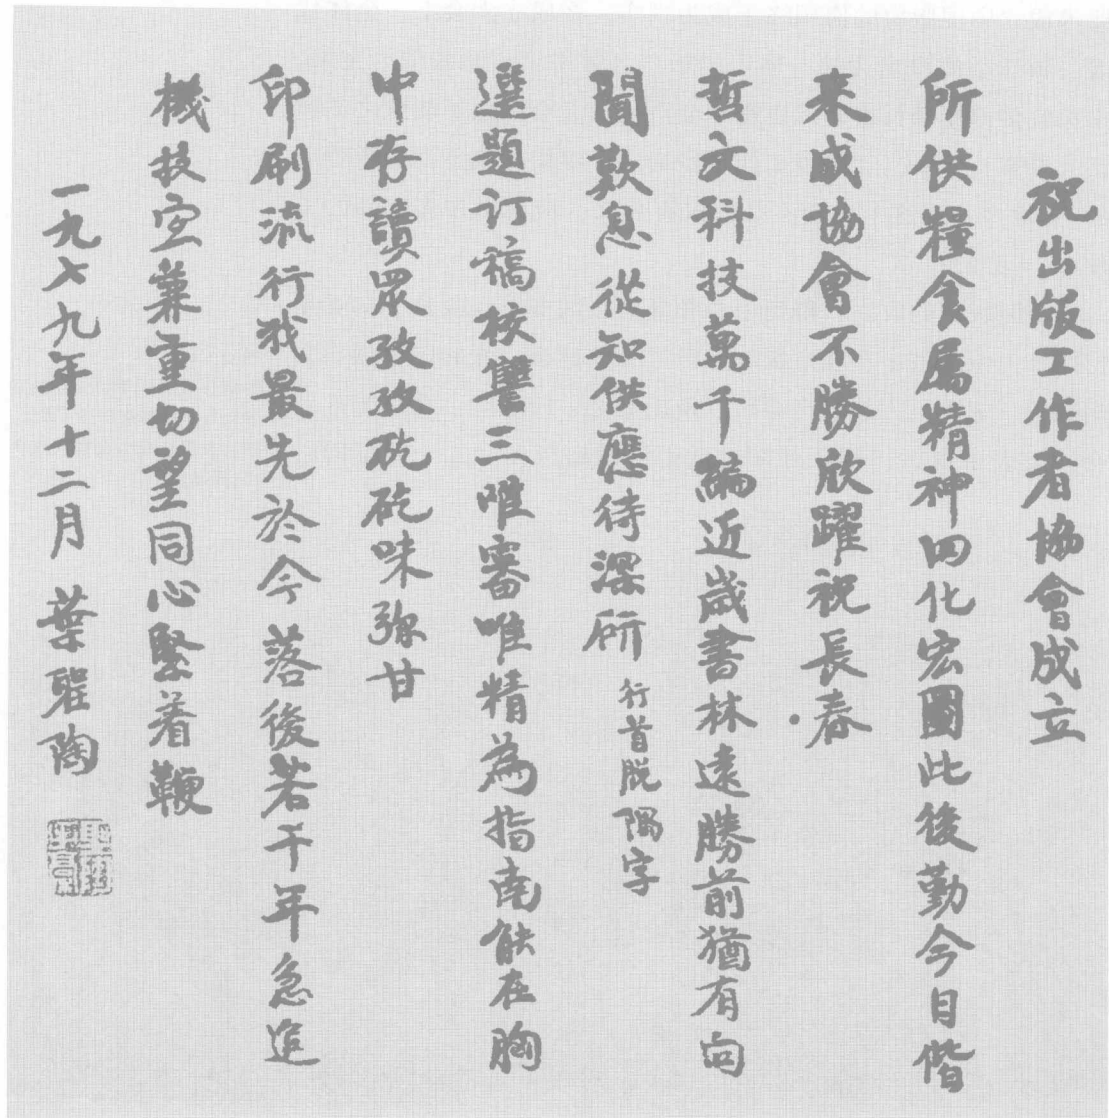 祝出版工作者協會成立
所供糧食屬精神四化宏圖此後勤今日偕
來成協會不勝欣躍祝長春
哲文科技萬千編近歲書林遠勝前猶有向
間歎息從知供應待深研 行首脱隅字
選題订稿校讐三唯審唯精為指南能在胸
中存讀眾孜孜矻矻味弥甘
印刷流行我最先於今落後若干年急追
機技宜兼重切望同心緊着鞭
一九七九年十二月 葉聖陶